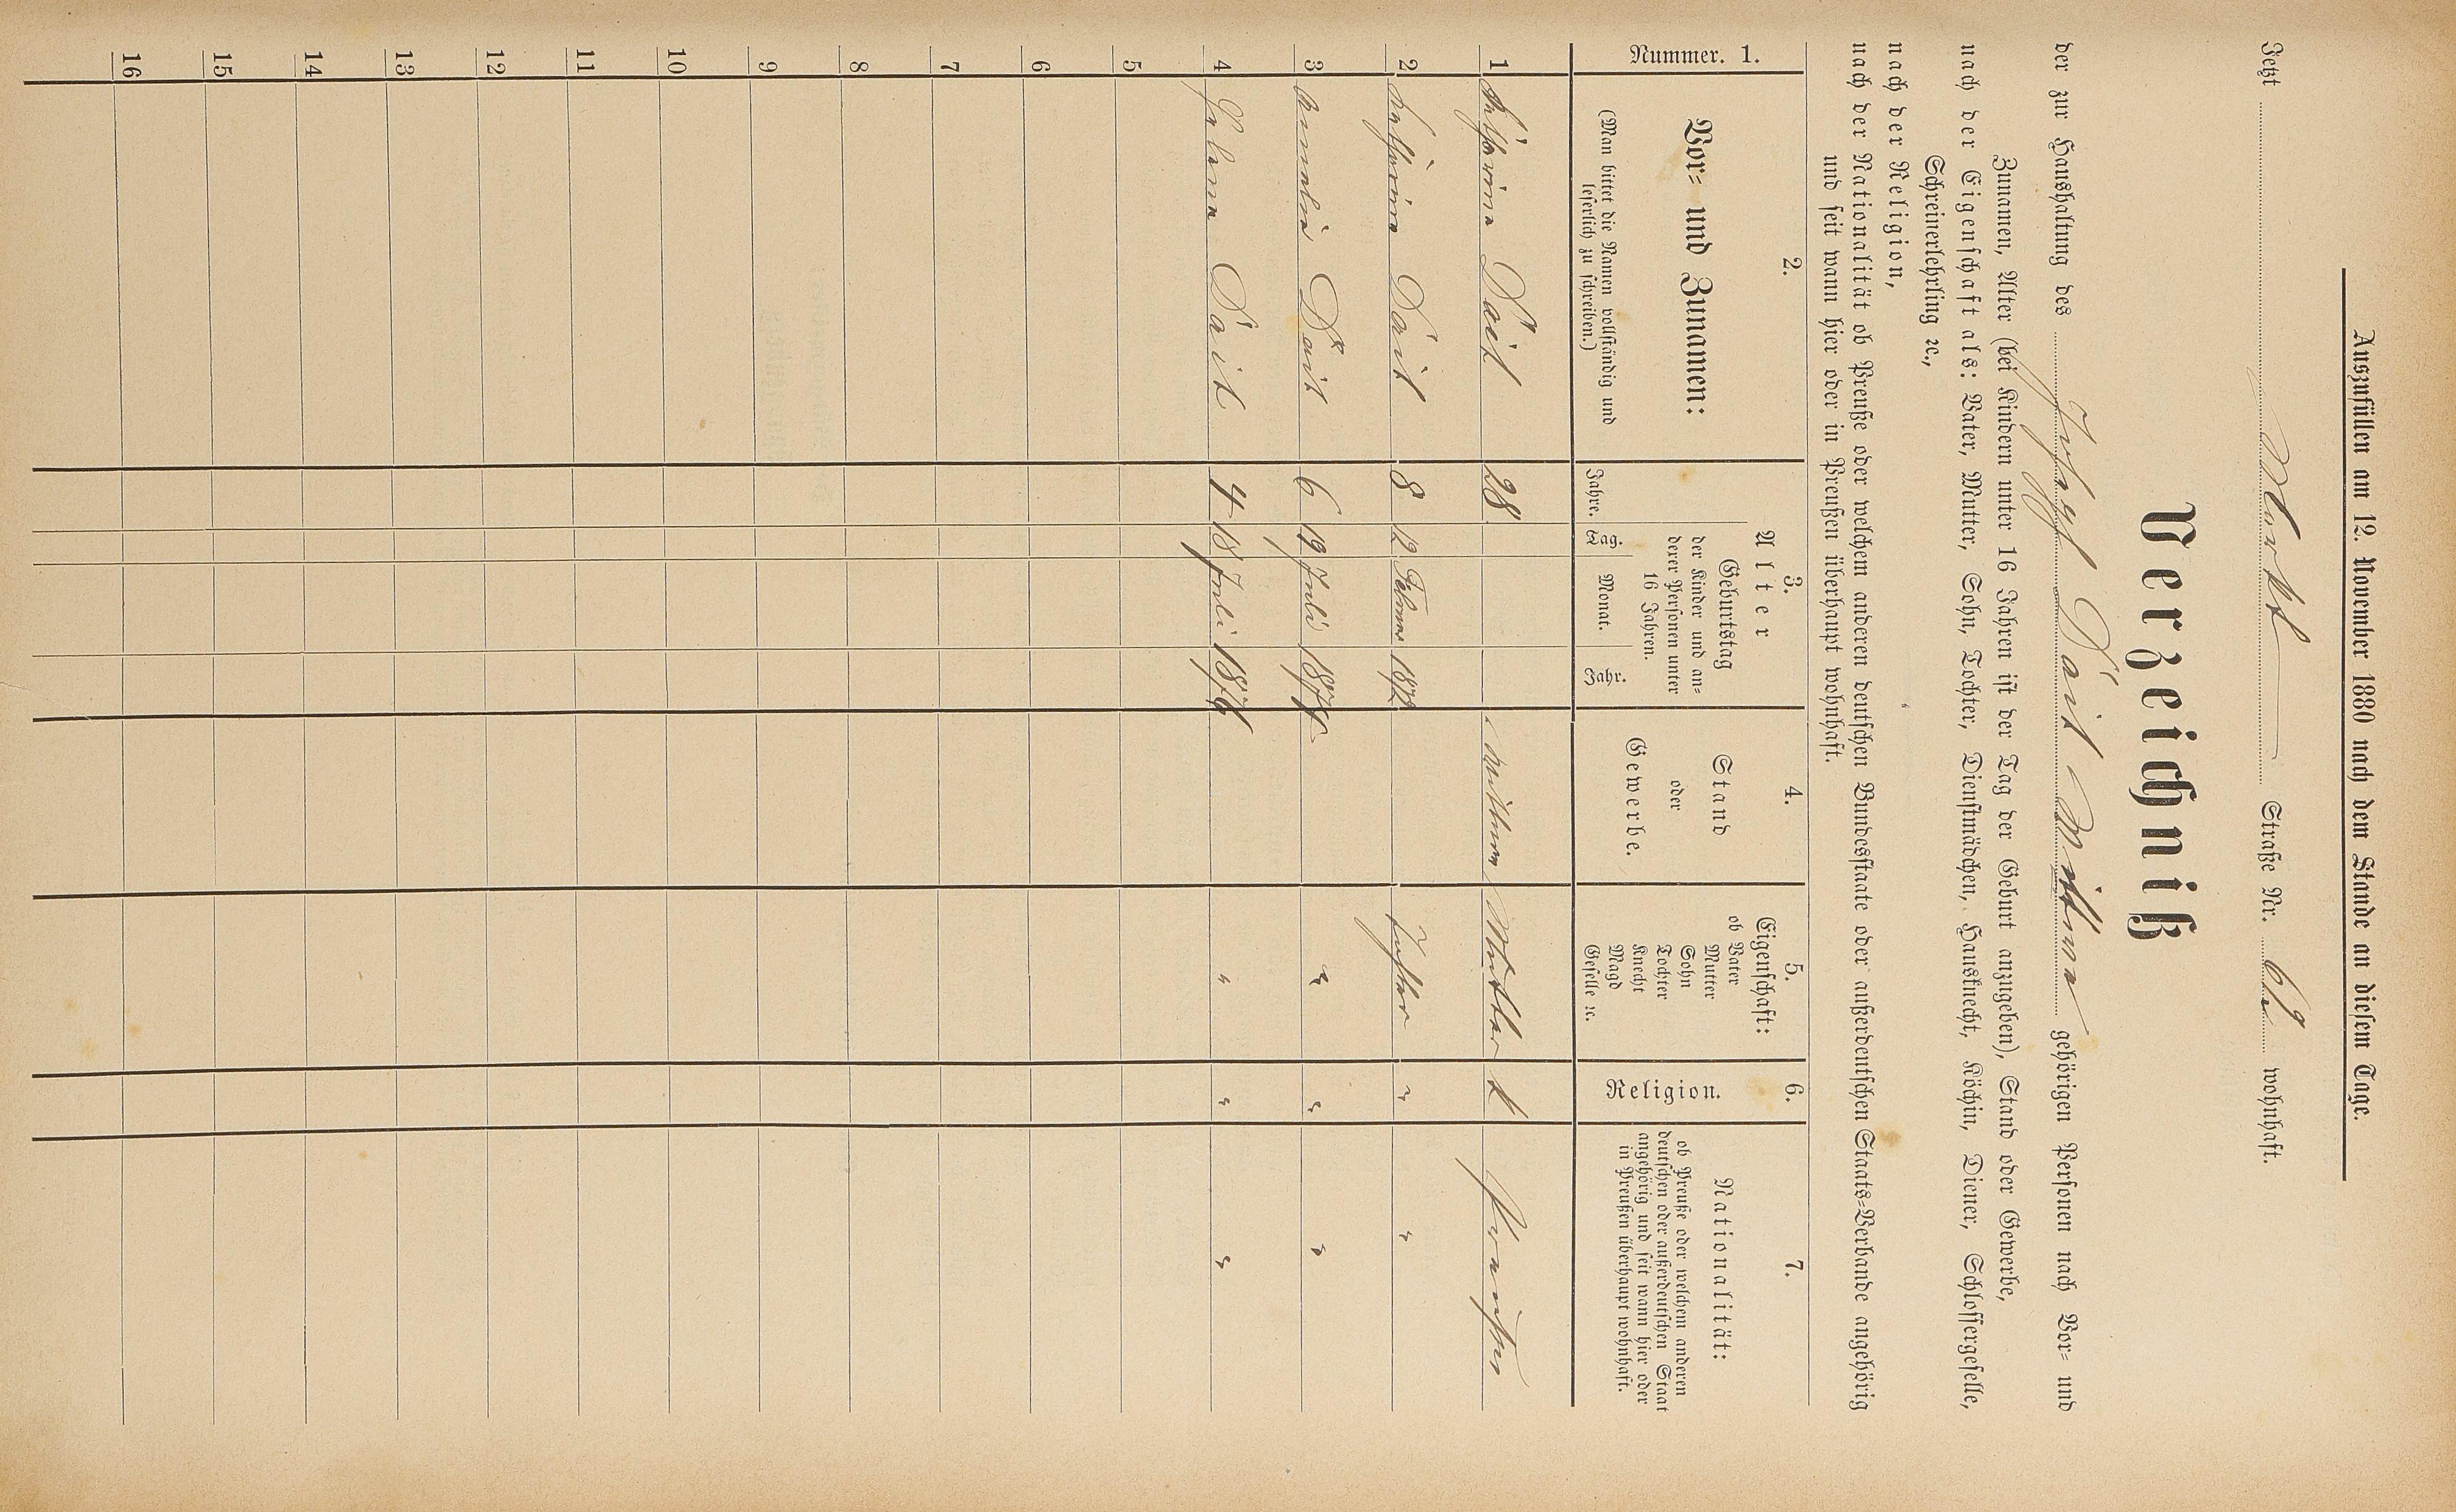 Auszufüllen am 12. November 1880 nach dem Stande an diesem Tage.
Jetzt Markt Straße Nr. wohnhaft.
Verzeichniß
der zur Haushaltung des Joseph Wittwe gehörigen Personen nach Vor- und
Zunamen, Alter (bei Kindern unter 16 Jahren ist der Tag der Geburt anzugeben), Stand oder Gewerbe,
nach der Eigenschaft als: Vater, Mutter, Sohn, Tochter, Dienstmädchen, Hausknecht, Köchin, Diener, Schlossergeselle,
Schreinerlehrling ꝛc.,
nach der Religion,
nach der Nationalität ob Preuße oder welchem anderen deutschen Bundesstaate oder außerdeutschen Staats-Verbande angehörig
und seit wann hier oder in Preußen überhaupt wohnhaft.
Nummer. 1.
2.
Vor- und Zunamen:
(Man bittet die Namen vollständig und
leserlich zu schreiben.)
3.
Alter
Jahre.
Geburtstag
der Kinder und an-
derer Personen unter
16 Jahren.
Tag. Monat. Jahr.
4.
Stand
oder
Gewerbe.
5.
Eigenschaft:
ob Vater
Mutter
Sohn
Tochter
Knecht
Magd
Geselle ꝛc.
6.
Religion.
7.
Nationalität:
ob Preuße oder welchem anderen
deutschen oder außerdeutschen Staat
angehörig und seit wann hier oder
in Preußen überhaupt wohnhaft.
1 28 Wittwe Mutter k
2 8 12 1872 Tochter " "
3 6 19 Juli " " "
4 4 18 Juli 1876 " " "
5
6
7
8
9
10
11
12
13
14
15
16